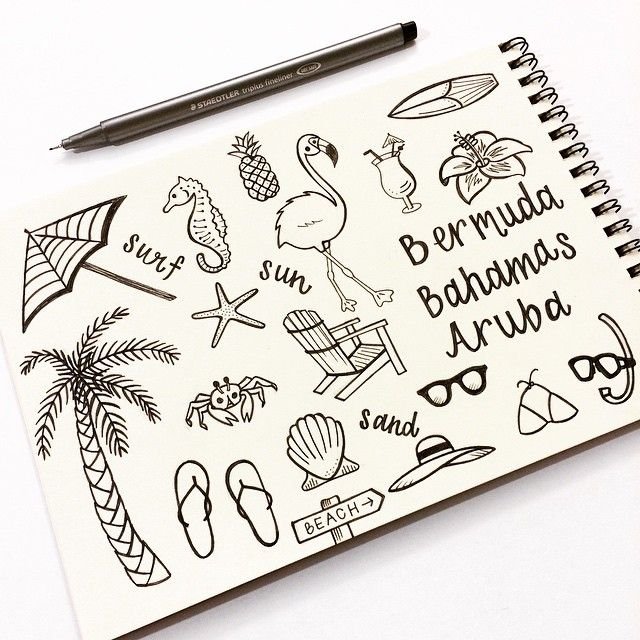 STAEDTLER triplus fineliner
surf
sun
Bermuda
Bahamas
Aruba
sand
BEACH